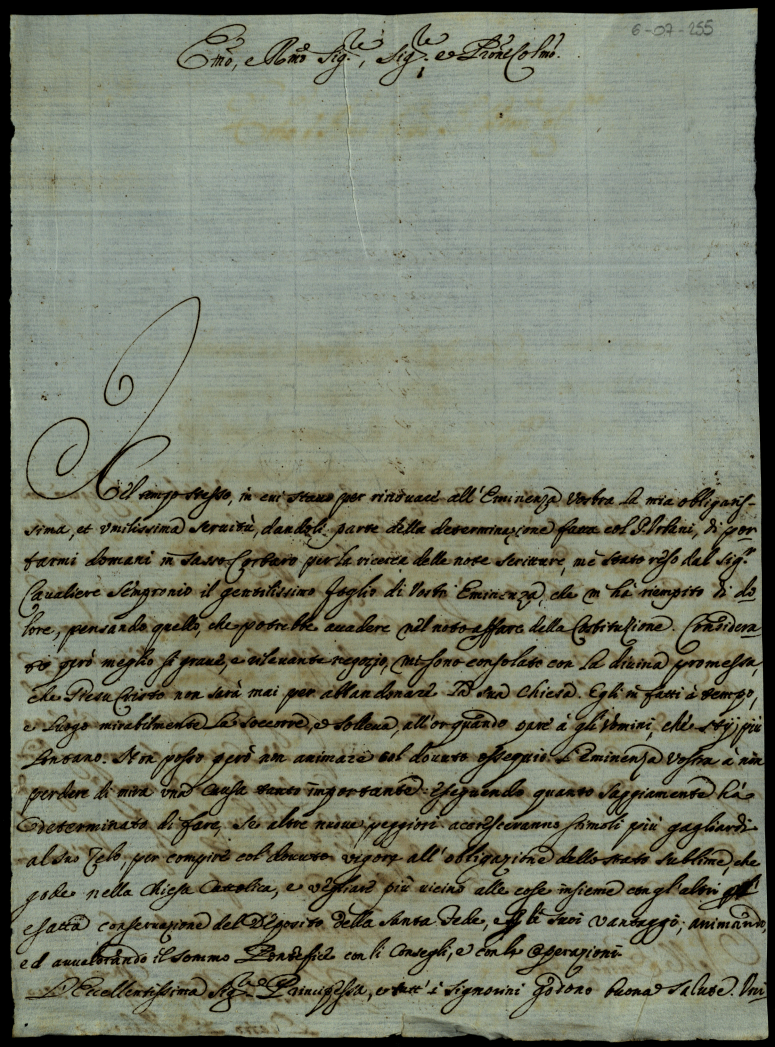 6-07-255
Emo, e Rmo Sig.re, Sig.re e Prone Colmo.
Nel tempo stesso, in cui stavo per rinovare all'Eminenza Vostra la mia obligatis-
sima, et umilissima servitù, dandoli parte della determinazione fatta col P. Orlani, di por-
tarmi domani in Sasso Corbaro per la ricerca delle note scritture, m'è stato reso dal Sig.r
Cavaliere Sempronio il gentilissimo foglio di Vostr'Eminenza, che m'ha riempito di do-
lore, pensando quello, che potrebbe accadere nel noto affare della Costituzione. Considera-
to però meglio sì grave, e rilevante negozio, mi sono consolato con la divina promessa,
che Giesu Cristo non sarà mai per abbandonare la sua Chiesa. Egli in fatti à tempo,
e luogo mirabilmente la soccorre, e solleva, all'or quando pare à gli uomini, che stij più
lontano. Non posso però non animare col dovuto ossequio l'Eminenza Vostra à non
perdere di mira una causa tanto importante: eseguendo quanto saggiamente hà
determinato di fare, se altre nuove peggiori accresceranno stimoli più gagliardi
al suo zelo, per compire col dovuto vigore all'obligazione dello stato sublime, che
gode nella Chiesa Cattolica, e vegliare più vicino alle cose insieme con gl'altri
esatta conservazione del Deposito della Santa Fede, e li suoi vantaggi, animando,
ed avvalorando il Sommo Pontefice con li Consegli, e con le Operazioni.
L'Eccellentissima Sig.ra Principessa, e tutt'i Signorini godono buona salute. Uni